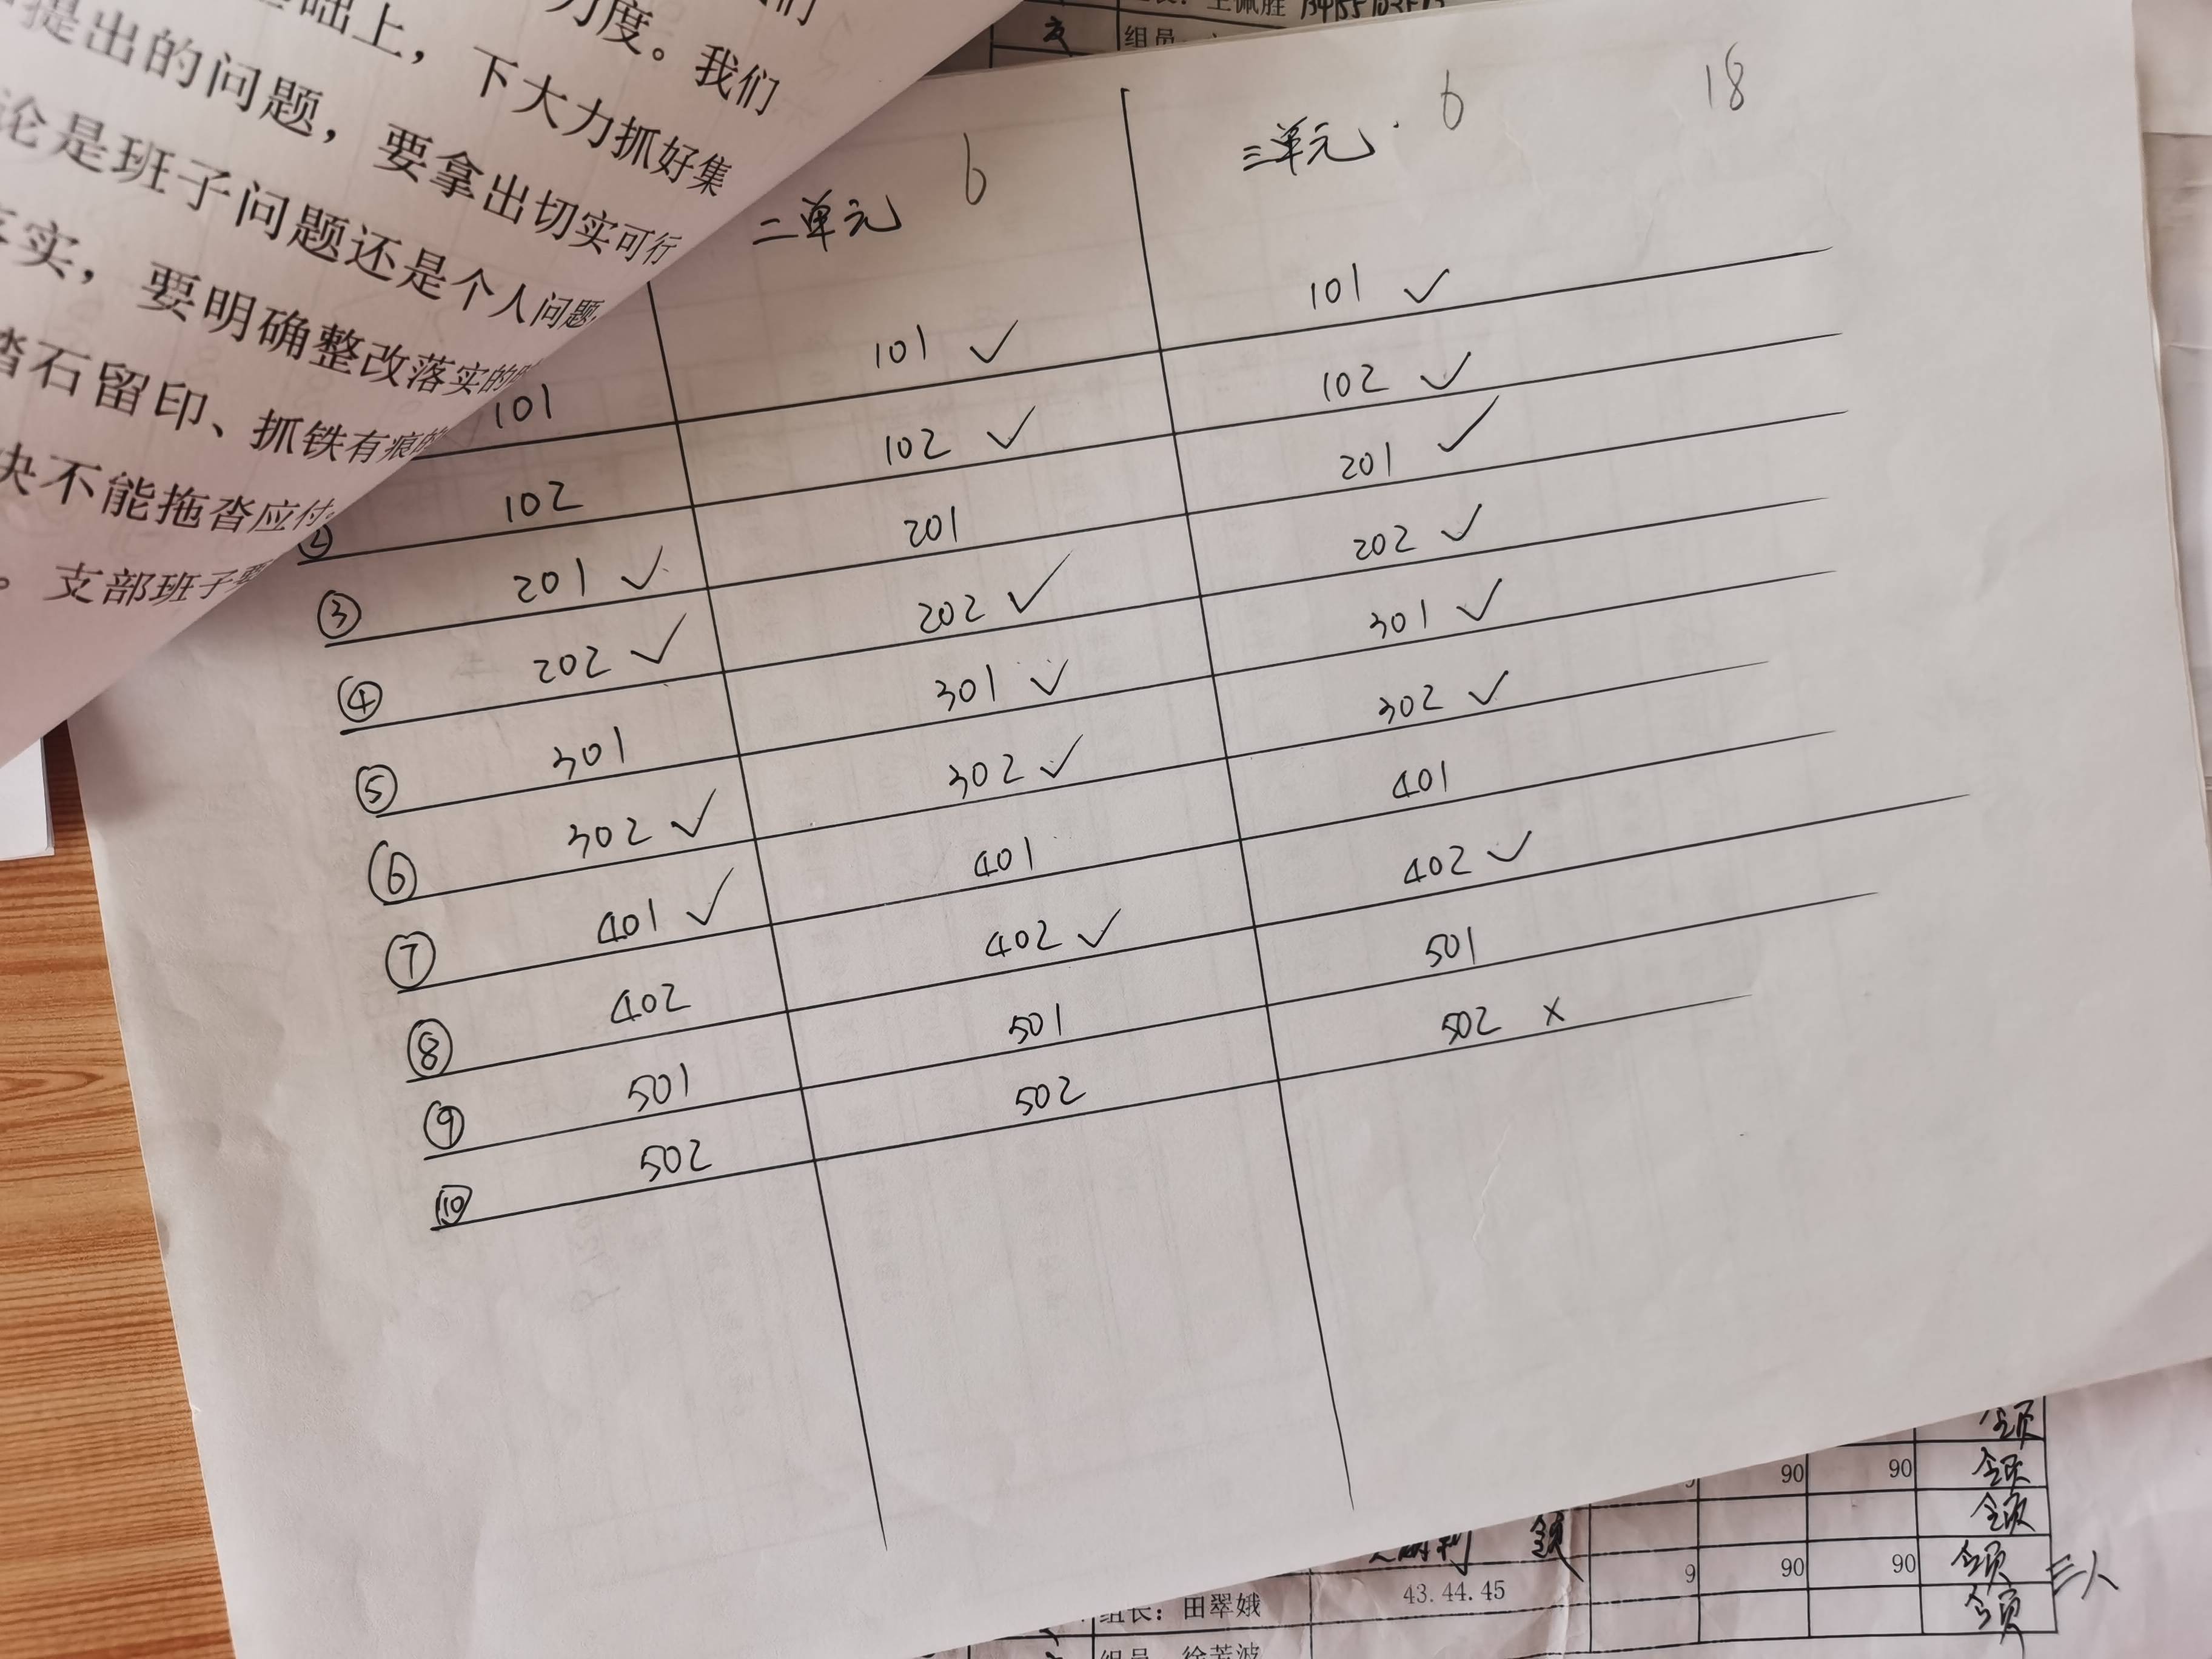 们
础上，
力度。我们
提出的问题，
下大力抓好集
论是班子问题还是个人问题
要拿出切实可行
实，要明确整改落实的
踏石留印、抓铁有痕的
决不能拖沓应付。
。支部班子要
组员
二单元 6
三单元. 6 18
101 101 ✓ 101 ✓
② 102 102 ✓ 102 ✓
③ 201 ✓ 201 201 ✓
④ 202 ✓ 202 ✓ 202 ✓
⑤ 301 301 ✓ 301 ✓
⑥ 302 ✓ 302 ✓ 302 ✓
⑦ 401 ✓ 401 401
⑧ 402 402 ✓ 402 ✓
⑨ 501 501 501
⑩ 502 502 502 ×
90 90
9 90 90 三人
组长：田翠娥 43.44.45
组员 徐芳波